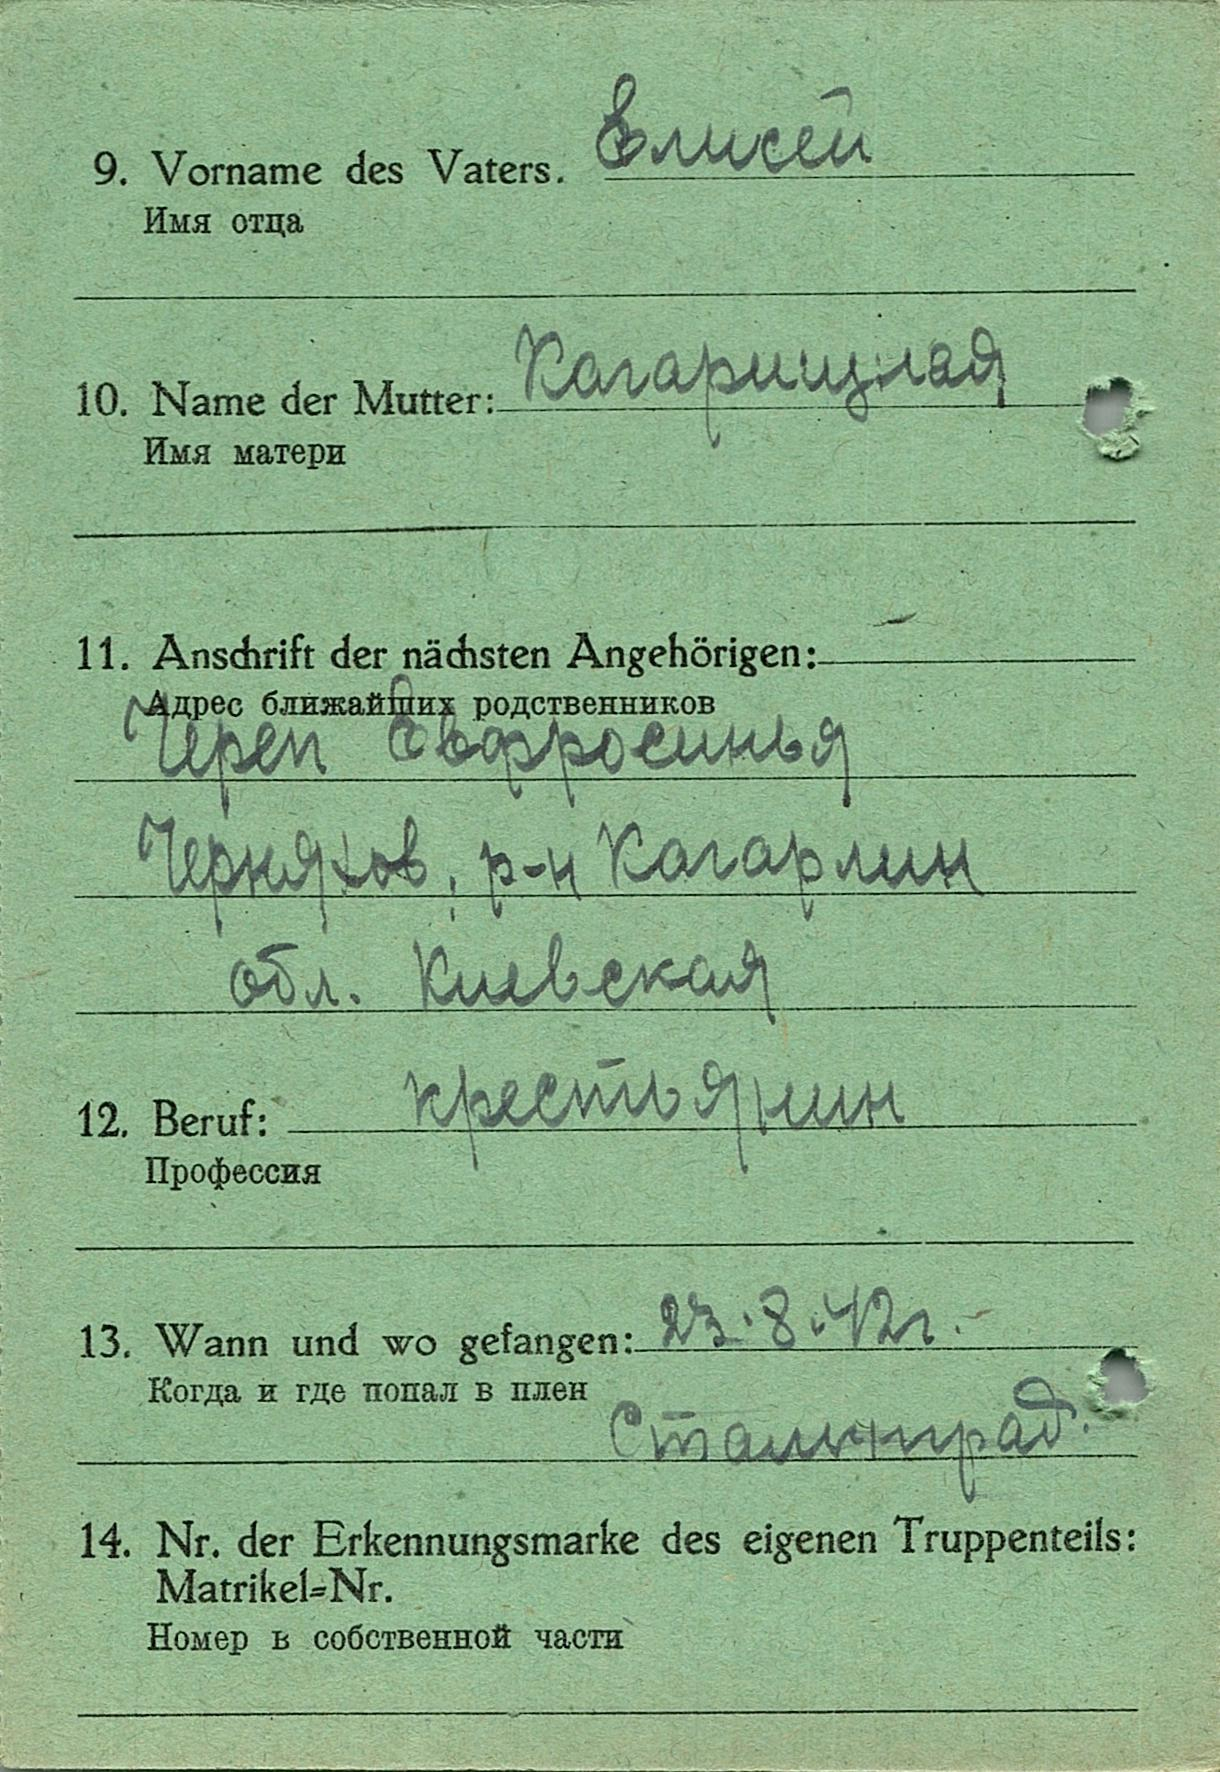 9. Vorname des Vaters. Елисей
Имя отца
10. Name der Mutter: Кагарицкая
Имя матери
11. Anschrift der nächsten Angehörigen:
Адрес ближайших родственников
Череп Евфросинья
Черняхов, р-н Кагарлин
обл. Киевская
12. Beruf: крестьянин
Профессия
13. Wann und wo gefangen: 23.8.42г.
Когда и где попал в плен
Сталинград.
14. Nr. der Erkennungsmarke des eigenen Truppenteils:
Matrikel=Nr.
Номер в собственной части